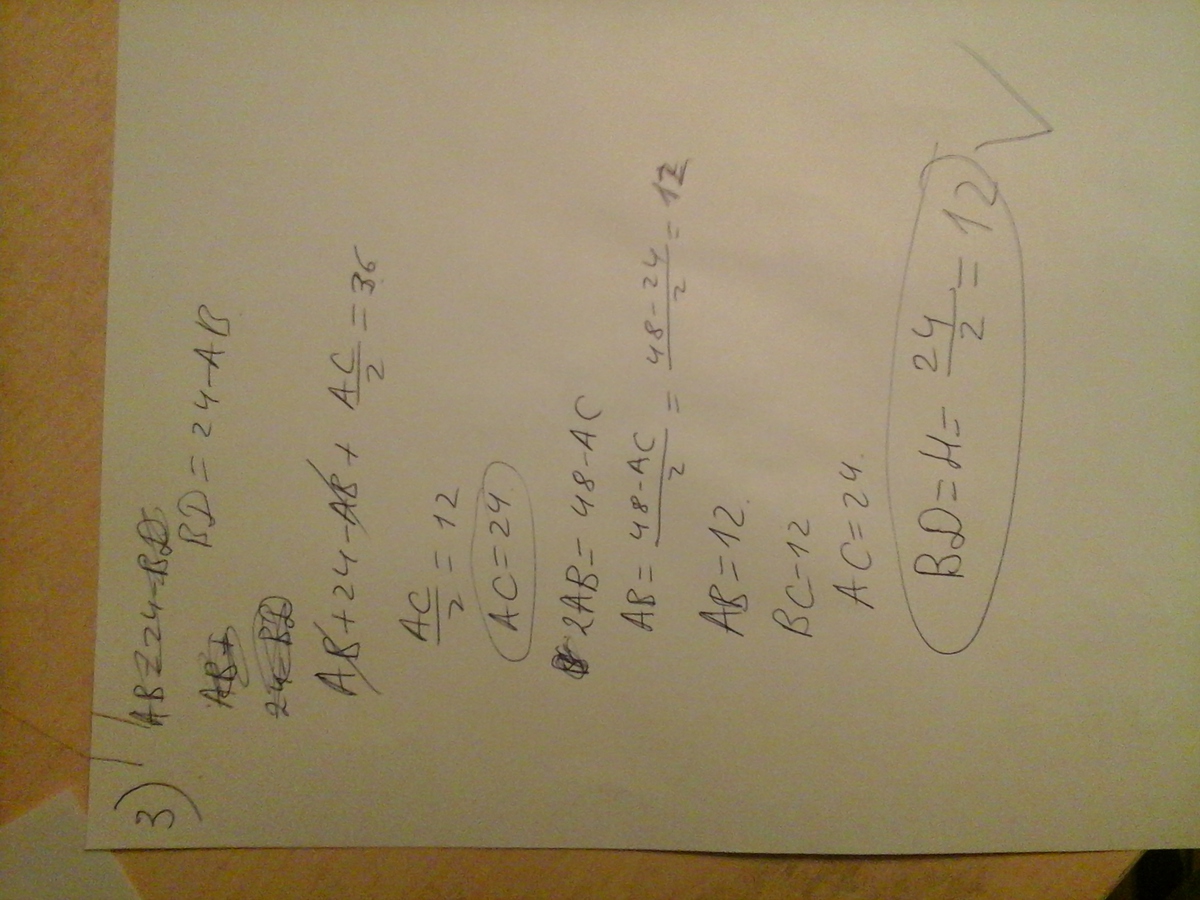 3) AB=24-BD
BD=24-AB
AB+
24-BD
AB+24-AB+AC/2=36
AC/2=12
AC=24
2AB=48-AC
AB=48-AC/2=48-24/2=12
AB=12
BC=12
AC=24
BD=H=24/2=12